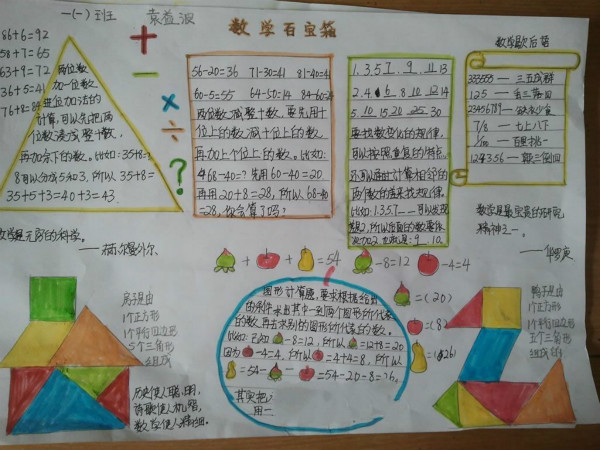 一(一)班 袁益波
数学百宝箱
86+6=92
58+7=65
63+9=72
35+6=41
76+8=84
两位数
加一位数
进位加法的
计算,可以先把两
位数凑成整十数,
再加余下的数。比如:35+8=?
8可以分成5和3,所以35+8=
35+5+3=40+3=43.
56-20=36 71-30=41 81-40=4
60-5=55 64-50=14 84-60=2
两位数减整十数,要先用十
位上的数减十位上的数,
再加上个位上的数。比如:
68-40=?先用60-40=20
再用20+8=28,所以68-40
=28,你会算了吗?
1.3.5.7.9.11 13
2.4.6.8.10.12.14
5.10.15.20.25.30
要找数变化的规律,
可以按照重复的特点,
还可以通过计算相邻的
两个数的差来找规律。
比如:1.3.5.7.---可以发现
9. 10.
数学歇后语
333555 — 三五成群
125 — 丢三落四
23456789 — 缺衣少食
7/8 — 七上八下
1/100 — 百里挑一
数学是无穷的科学。
——赫尔曼外尔
数学是最宝贵的研究
精神之一。
——华罗庚
+ + =54 -8=12 -4=4
=(20)
=(8)
=(26)
图形计算题,要求根据给出
的条件求出其中一到两个图形所代表
的数,再去求别的图形所代表的数。
比如:因为 -8=12,所以 =12+8=20
因为 -4=4,所以 =4+4=8,所以
=54- - =54-20-8=26。
房子是由
1个正方形
1个平行四边形
5个三角形
组成
鸭子是由
1个正方形
1个平行四边形
五个三角形
组成的
历史使人聪明,
诗歌使人机智,
数学使人精细。